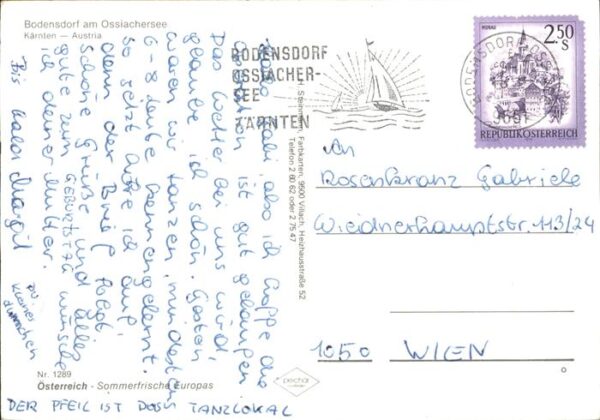 Bodensdorf am Ossiachersee
Kärnten — Austria
BODENSDORF
OSSIACHER-
SEE
KÄRNTEN
BODENSDORF
MURAU
2.50
S
REPUBLIK ÖSTERREICH
Gabi, also ich hoppe die
ist gut gelaufen
Das Wetter bei uns wird,
glaube ich schön. Gestern
waren wir tanzen, mindestens
6-8 Leute kennengelernt.
so jetzt höre ich auf,
denn der Brief folgt.
Schöne Grüße und alles
gute zum GEBURTSTAG wünsche
ich deiner Mutter
Bis bald Margit
kleines
dummchen
Farbkarten, 9500 Villach, Heizhausstraße 52
Telefon 2 60 62 oder 2 75 47
An
Rosenkranz Gabriele
Wiednerhauptstr. 113/24
1050 WIEN
Nr. 1289
Österreich - Sommerfrische Europas
DER PFEIL IST DAS TANZLOKAL